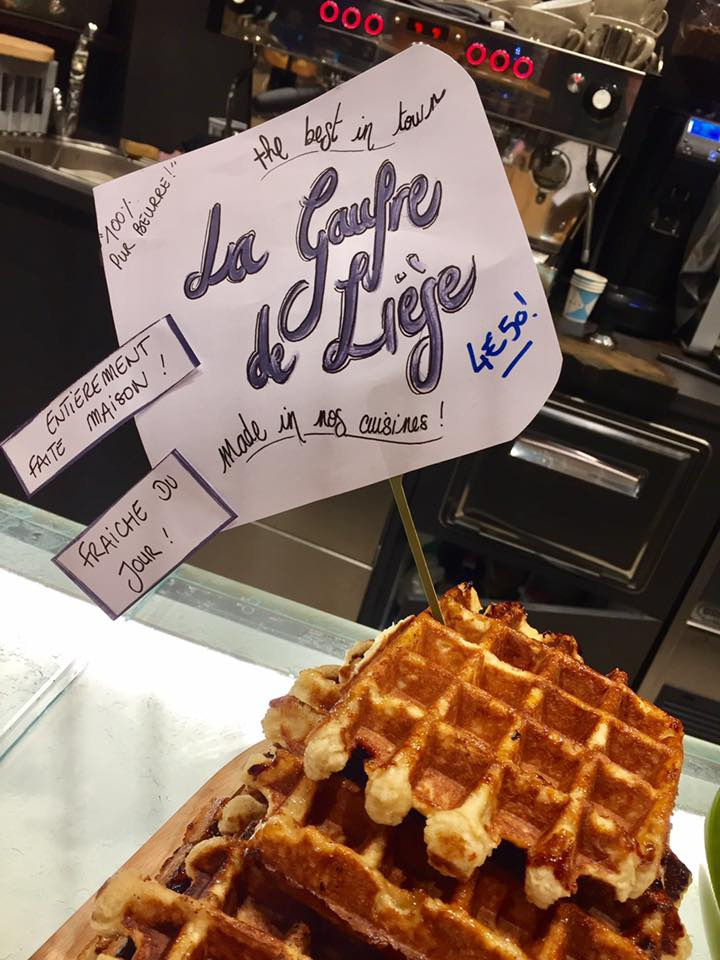 the best in town
"100%
PUR BEURRE!"
La Gaufre
de Liège
4€50!
made in nos cuisines!
ENTIÈREMENT
FAITE MAISON!
FRAÎCHE DU
JOUR!